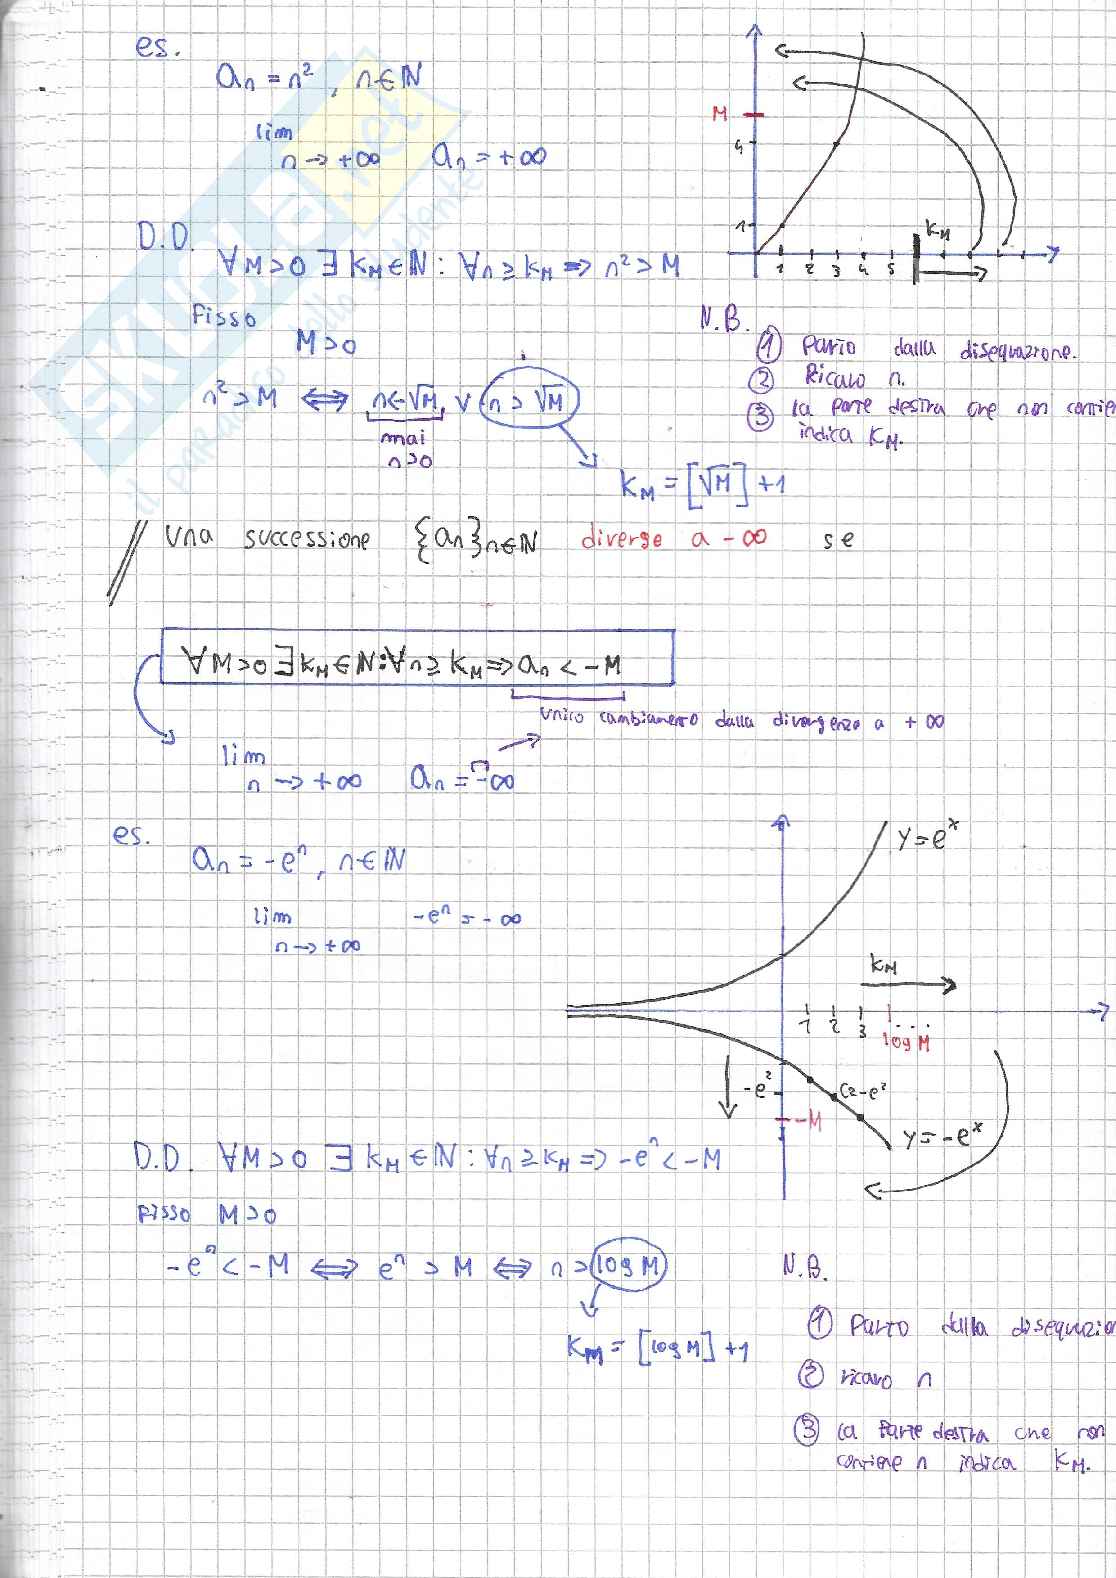 es.
aₙ = n², n∈ℕ
lim
n → +∞ aₙ = +∞
M
4
1
1 2 3 4 5
K_M
D.D.
∀M>0 ∃ K_M∈ℕ: ∀n ≥ K_M ⟹ n² > M
Fisso
M>0
n² > M ⟺ n<-√M, ∨ n > √M
mai
n>0
K_M = [√M] + 1
N.B.
① Parto dalla disequazione.
② Ricavo n.
③ La parte destra che non contie
indica K_M.
Una successione {aₙ}n∈ℕ diverge a -∞ se
∀M>0 ∃K_M∈ℕ:∀n≥K_M⟹aₙ < -M
unico cambiamento dalla divergenza a +∞
lim
n → +∞ aₙ = -∞
es.
aₙ = -eⁿ, n∈ℕ
lim -eⁿ = -∞
n → +∞
y = eˣ
K_M
1 2 3 log M
-e²
-e²
-M
y = -eˣ
D.D. ∀M>0 ∃ K_M∈ℕ: ∀n≥K_M ⟹ -eⁿ < -M
Fisso M>0
-eⁿ < -M ⟺ eⁿ > M ⟺ n > log M
K_M = [log M] + 1
N.B.
① Parto dalla disequazio
② ricavo n
③ La parte destra che non
contiene n indica K_M.
SKUOLA.net
il paradiso dello studente